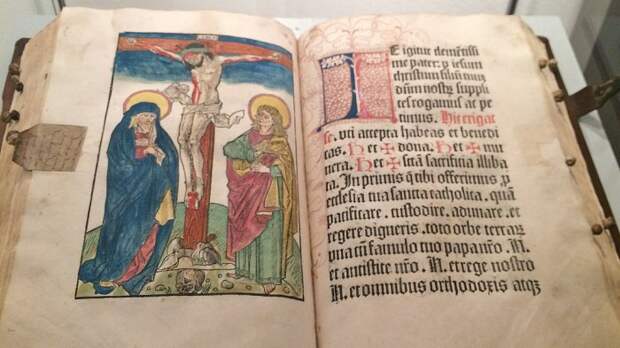 TE igitur clementissi
me pater. p iesum
christum filiū tuū
dn̄m nostrū suppli
ces rogamus ac pe
timus. Hic erigat
se. vti accepta habeas et benedi
cas. Hec ✠ dona. Hec ✠ mu
nera. Hec ✠ sctā sacrificia illiba
ta. In primis q̄ tibi offerimus p
ecclesia tua sancta catholica. quā
pacificare. custodire. adunare. et
regere digneris. toto orbe terrarꝝ
vna cū famulo tuo papa nr̄o. N.
et antistite nr̄o. N. et rege nostro
N. et omnibus orthodoxis atqꝫ